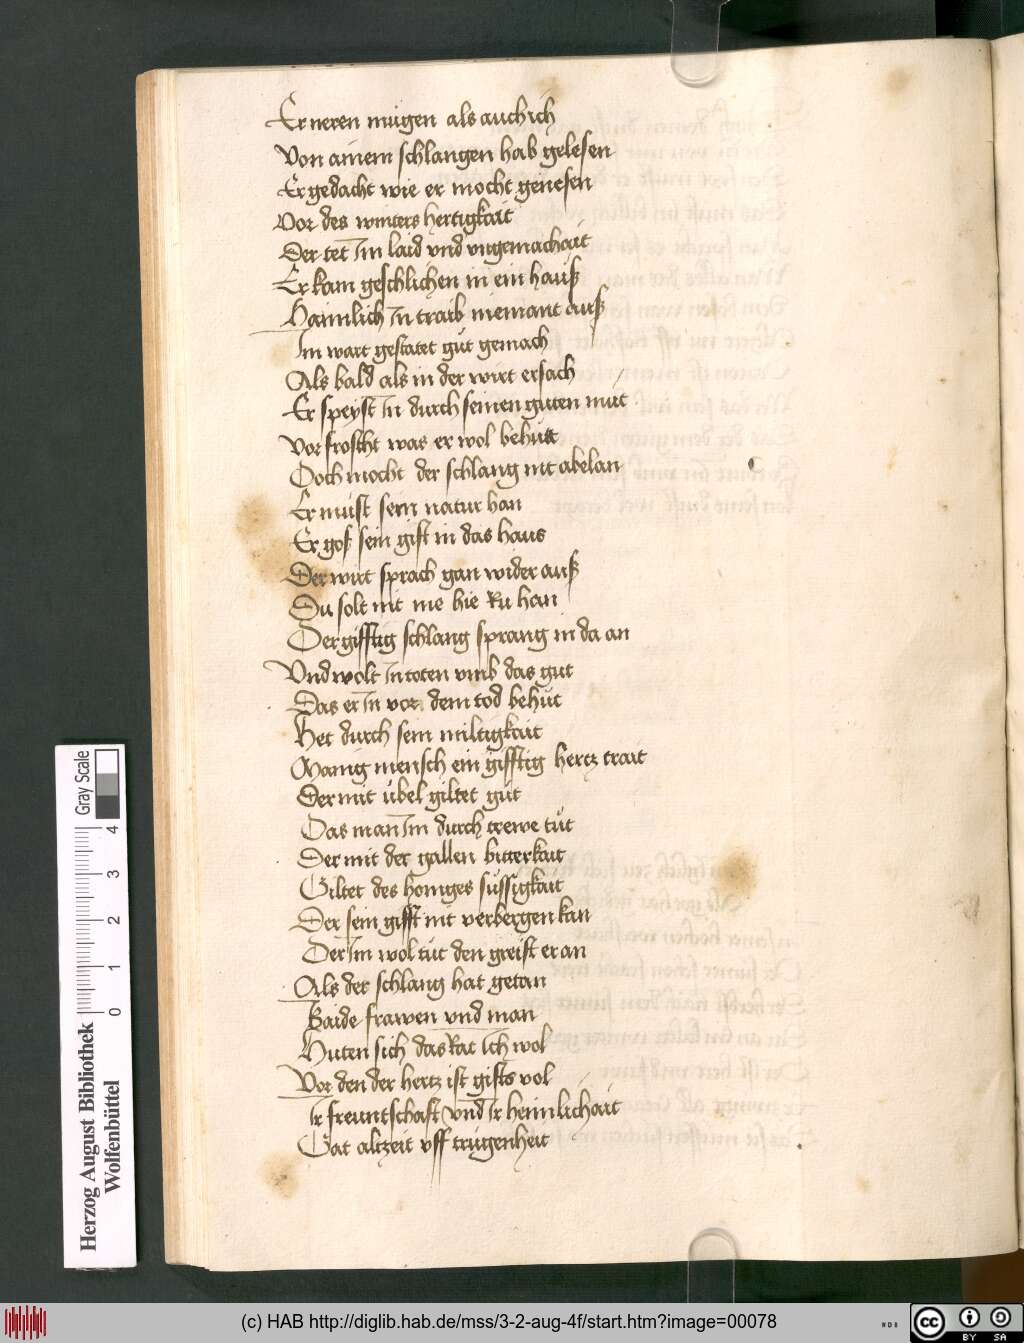 Er neren mügen als auch ich
Von ainem schlangen hab gelesen
Er gedacht wie er mocht genesen
Vor des winters hertigkait
Der tet Im laid vnd vngemachait
Er kam geschlichen in ein hauß
Haimlich In traib niemant auß
Im wart gestatet gůt gemach
Als bald als in der wirt ersach
Er speyst In durch seinen guten můt
Vor froscht was er wol behůtt
Doch mocht der schlang nit abelan
Er můst sein natur han
Er goß sein gift in das haus
Der wirt sprach gan wider auß
Du solt nit me hie Ru han
Der gifftig schlang sprang in da an
Vnd wolt In toten vmb das gůt
Das er In vor dem tod behůt
Het durch sein miltigkait
Manig mensch ein gifftig hertz trait
Der mit übel giltet gůt
Das man Im durch trewe tůt
Der mit der gallen bitterkait
Giltet des honiges süssigkait
Der sein gifft nit verbergen kan
Der Im wol tůt den greift er an
Als der schlang hat getan
Baide frawen vnd man
Huten sich das Rat Ich wol
Vor den der hertz ist gifts vol
Ir freuntschaft vnd Ir heimlichait
Gat altzeit vff trügenheit
Gray Scale
4
3
2
1
0
Herzog August Bibliothek
Wolfenbüttel
(c) HAB http://diglib.hab.de/mss/3-2-aug-4f/start.htm?image=00078
WDB
CC
BY SA